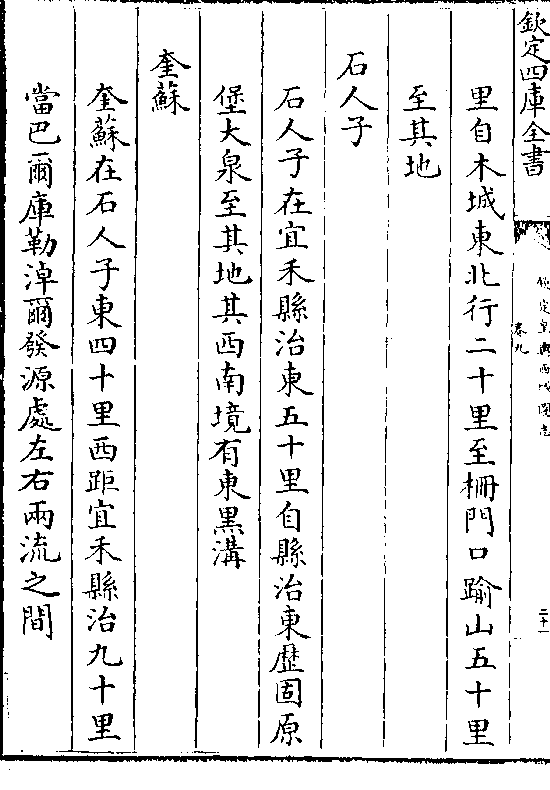 欽定四庫全書
欽定皇輿西域圖志
卷九
二十一
里自木城東北行二十里至柵門口踰山五十里
至其地
石人子
石人子在宜禾縣治東五十里自縣治東歷固原
堡大泉至其地其西南境有東黑溝
奎蘇
奎蘇在石人子東四十里西距宜禾縣治九十里
當巴爾庫勒淖爾發源處左右兩流之間